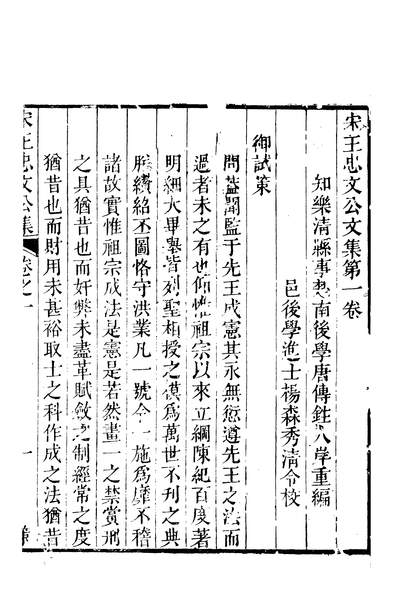 宋王忠文公文集第一卷
知樂清縣事楚南後學唐傳鉎八學重編
邑後學進士楊森秀清令校
御試策
問蓋聞監于先王成憲其永無愆遵先王之法而
過者未之有也仰惟祖宗以來立綱陳紀百度著
明細大畢舉皆列聖相授之謨爲萬世不刋之典
朕纘紹丕圖恪守洪業凡一號令一施爲靡不稽
諸故實惟祖宗成法是憲是若然畫一之禁賞刑
之具猶昔也而奸弊未盡革賦斂之制經常之度
猶昔也而財用未甚裕取士之科作成之法猶昔
宋王忠文公集
卷之一
一